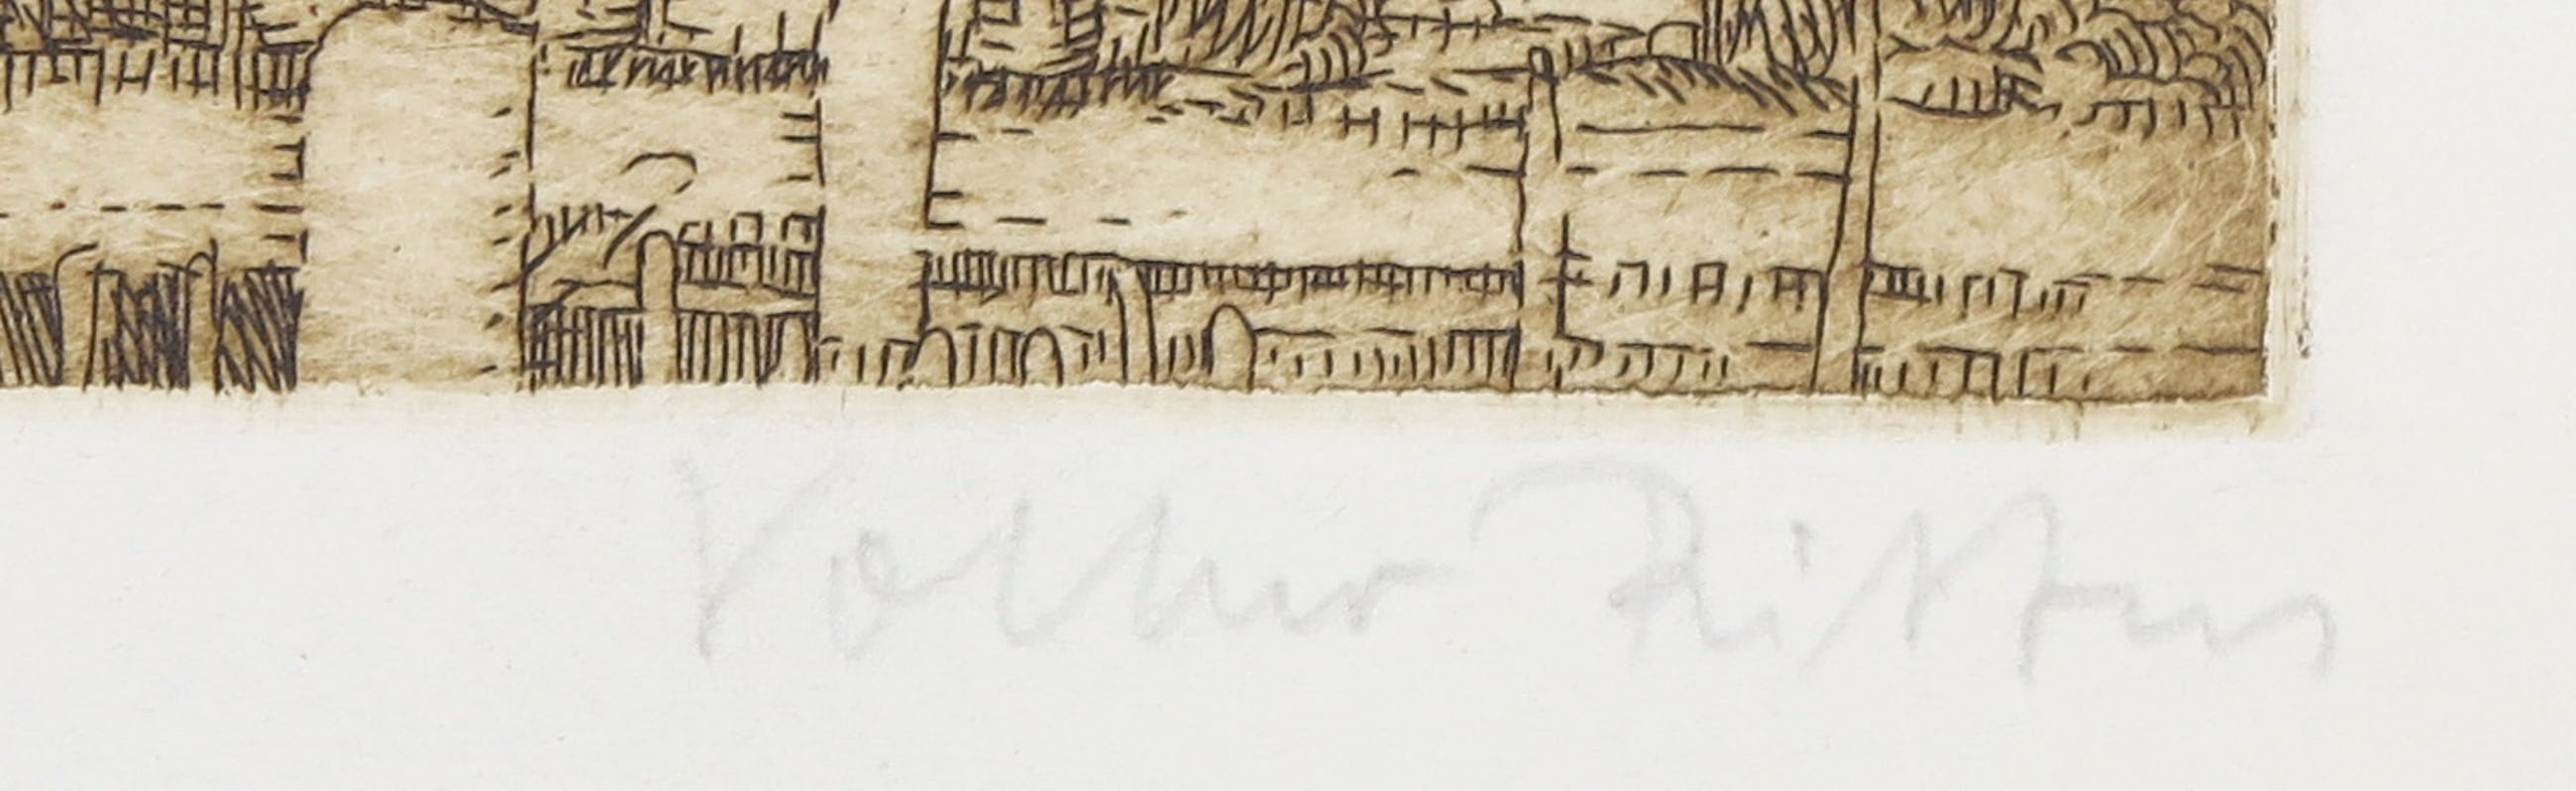 Volker Ritters